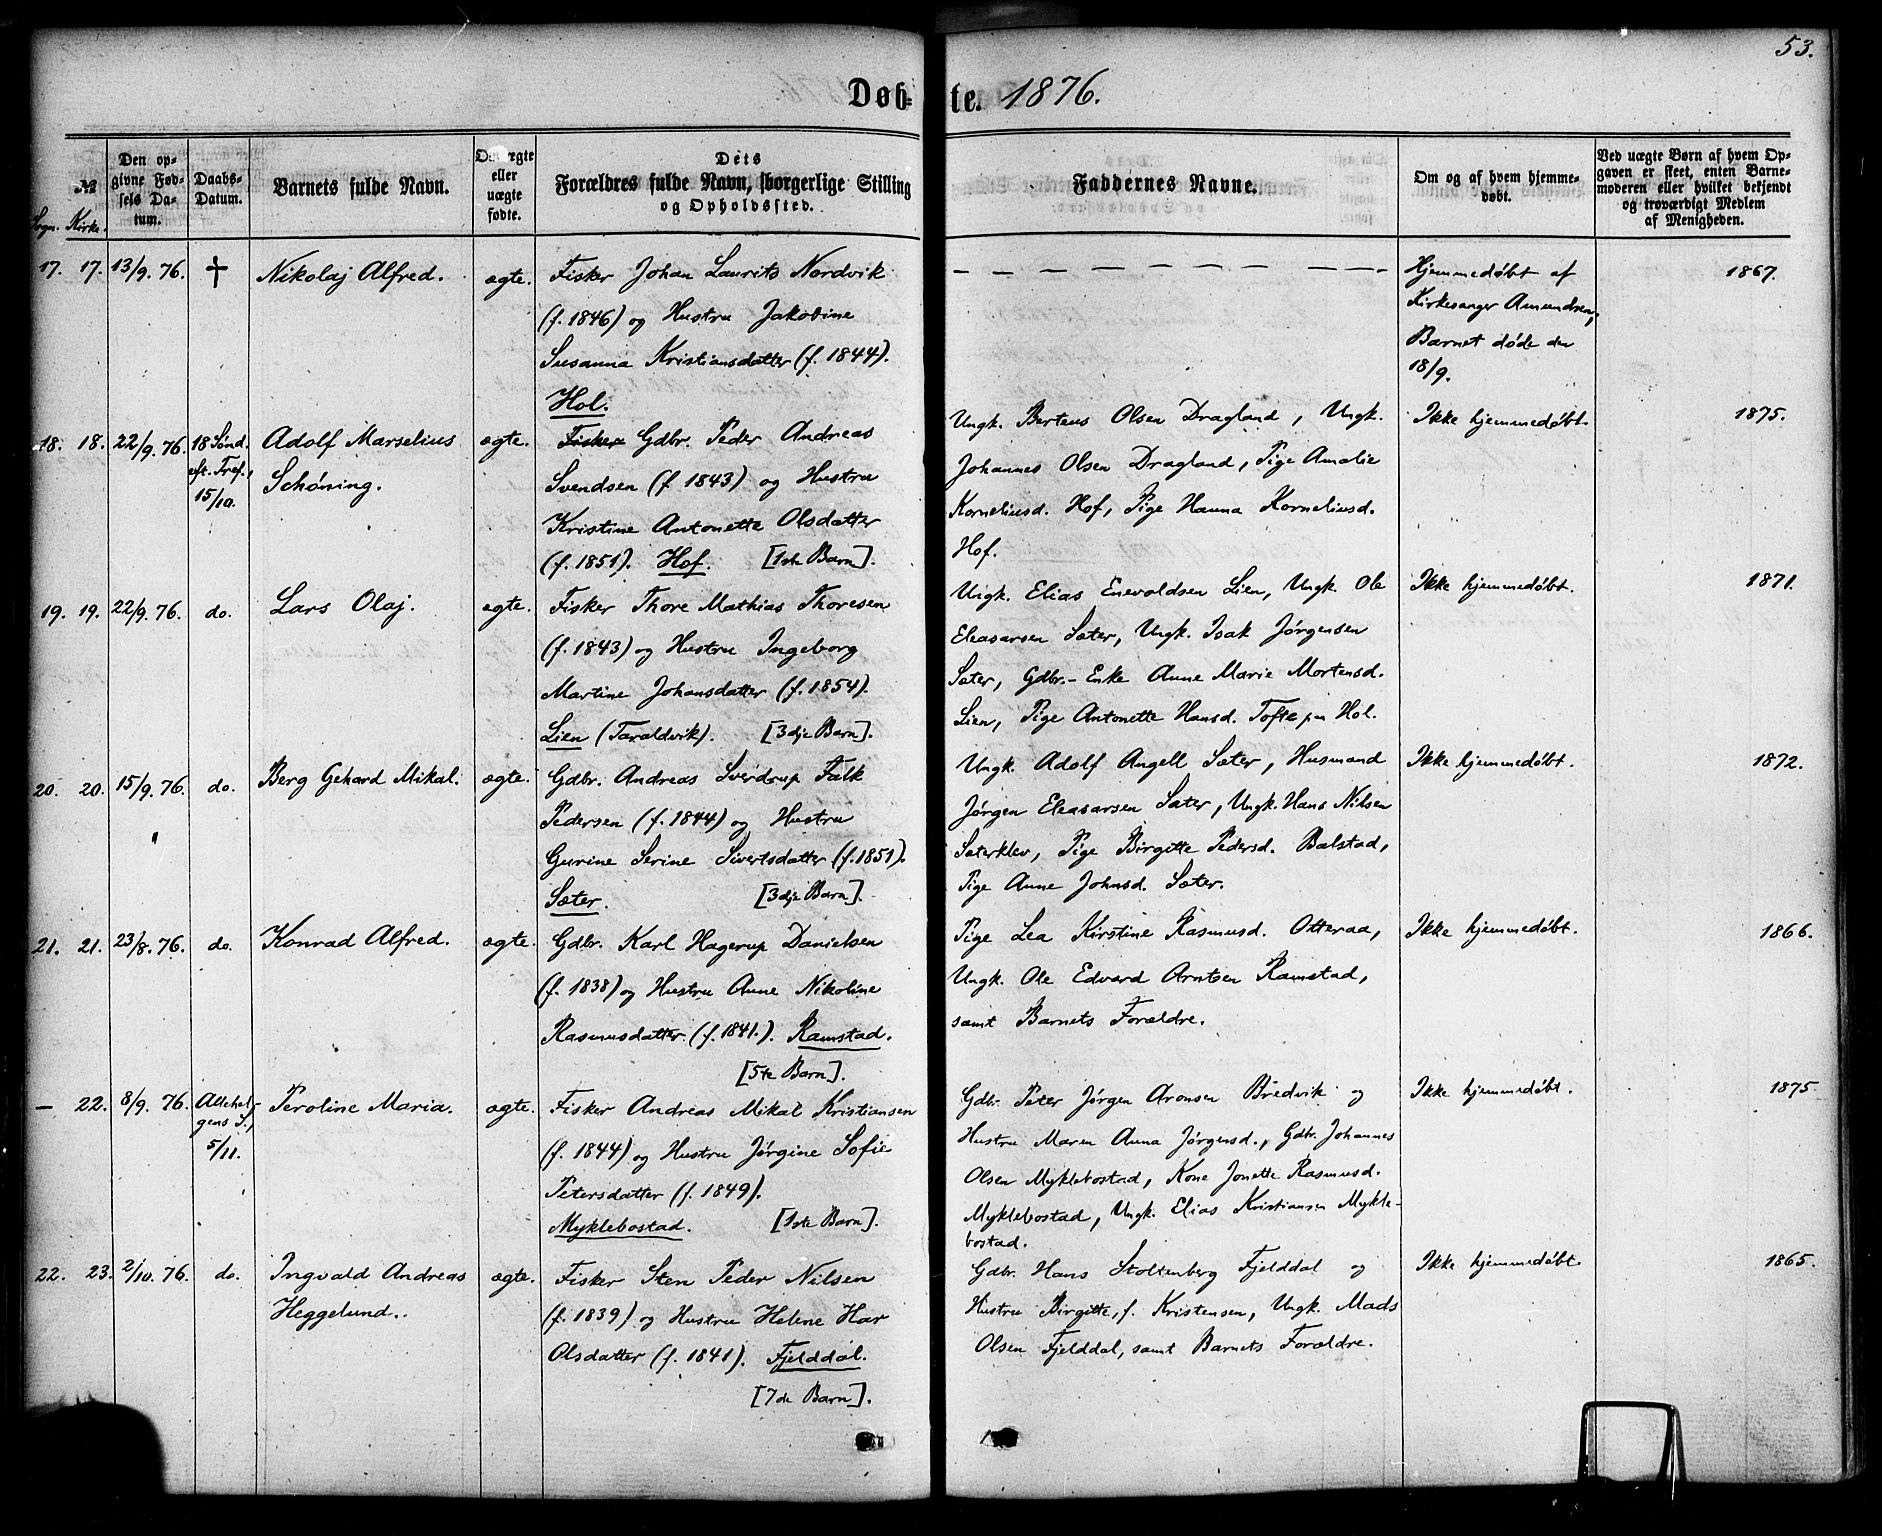 53.
Døb- te. 1876.
№
Sogn. Kirke.
Den op-
givne Fød-
sels Da-
tum.
Daabs-
Datum.
Barnets fulde Navn.
ægte
eller
uægte
fødte.
Dets
Forældres fulde Navn, borgerlige Stilling
og Opholdssted.
Faddernes Navne.
Om og af hvem hjemme-
døbt.
Ved uægte Børn af hvem Op-
gaven er skeet, enten Barne-
moderen eller hvilket bekjendt
og troværdigt Medlem
af Menigheden.
17. 17. 13/9. 76. † Nikolaj Alfred. ægte.
Fisker Johan Laurits Nordvik
(f. 1846) og Hustru Jakobine
Susanna Kristiansdatter (f. 1844).
Hol.
— — — — — — — — — — — —
Hjemmedøbt af
Kirkesanger Amundsen,
Barnet døde den
18/9.
1867.
18. 18. 22/9. 76. 18 Sønd.
eft. Tref.,
15/10.
Adolf Marselius
Schøning.
ægte.
Fisker Gdbr. Peder Andreas
Svendsen (f 1843) og Hustru
Kristine Antonette Olsdatter
(f. 1851). Hof. [1ste Barn].
Ungk. Berteus Olsen Dragland, Ungk.
Johannes Olsen Dragland, Pige Amalie
Korneliusd. Hof, Pige Hanna Korneliusd.
Hof.
Ikke hjemmedøbt.
1875.
19. 19. 22/9. 76. do. Lars Olaj. ægte.
Fisker Thore Mathias Thoresen
(f. 1843) og Hustru Ingeborg
Martine Johansdatter (f. 1854).
Lien (Taraldvik). [3dje Barn].
Ungk. Elias Enevoldsen Lien, Ungk. Ole
Eleasarsen Sæter, Ungk. Isak Jørgensen
Sæter, Gdbr.- Enke Anne Marie Mortensd.
Lien, Pige Antonette Hansd. Tofte paa Hol.
Ikke hjemmedøbt.
1871.
20. 20. 15/9. 76. do. Berg Gehard Mikal. ægte.
"
Gdbr. Andreas Sverdrup Falk
Pedersen (f. 1844) og Hustru
Gurine Serine Sivertsdatter (f. 1851).
Sæter. [3dje Barn].
Ungk. Adolf Angell Sæter, Husmand
Jørgen Eleasarsen Sæter, Ungk. Hans Nilsen
Sæterklev, Pige Birgitte Pedersd. Balstad,
Pige Anne Johnsd. Sæter.
Ikke hjemmedøbt.
1872.
21. 21. 23/8. 76. do. Konrad Alfred. ægte.
Gdbr. Karl Hagerup Danielsen
(f. 1838) og Hustru Anne Nikoline
Rasmusdatter (f. 1841.). Ramstad.
[5te Barn].
Pige Lea Kirstine Rasmusd. Otteraa,
Ungk. Ole Edvard Arntsen Ramstad,
samt Barnets Forældre.
Ikke hjemmedøbt.
1866.
— 22. 8/9. 76. Allehel-
gens S.,
5/11.
Peroline Maria. ægte.
Fisker Andreas Mikal Kristiansen
(f. 1844) og Hustru Jørgine Sofie
Petersdatter (f. 1849).
Myklebostad. [1ste Barn].
Gdbr. Peter Jørgen Aronsen Bredvik og
Hustru Maren Anna Jørgensd., Gdbr. Johannes
Olsen Myklebostad, Kone Jonette Rasmusd.
Myklebostad, Ungk. Elias Kristiansen Mykle-
bostad.
Ikke hjemmedøbt.
1875
22. 23. 2/10. 76. do. Ingvald Andreas
Heggelund.
ægte.
Fisker Sten Peder Nilsen
(f. 1839) og Hustru Helene Har
Olsdatter (f. 1841). Fjelddal.
[7de Barn].
Gdbr. Hans Stoltenberg Fjelddal og
Hustru Birgitte, f. Kristensen, Ungk. Mads
Olsen Fjelddal, samt Barnets Forældre.
Ikke hjemmedøbt.
1865.